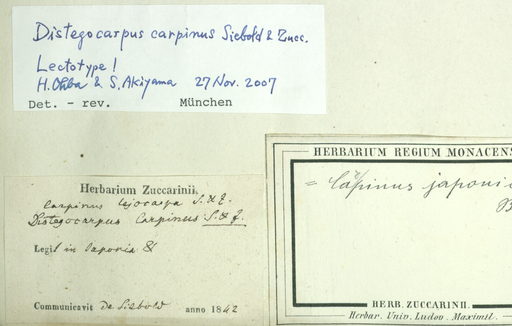 Distegocarpus carpinus Siebold & Zucc.
Lectotype!
H. Ohba & S. Akiyama 27 Nov. 2007
Det. - rev. München
Herbarium Zuccarinii.
Carpinus S. & Z.
Distegocarpus Carpinus S. & Z.
Legit in Japonia
Communicavit De Siebold anno 1842
HERBARIUM REGIUM MONACENS
= Carpinus japonic
B
HERB. ZUCCARINII.
Herbar. Univ. Ludov. Maximil.